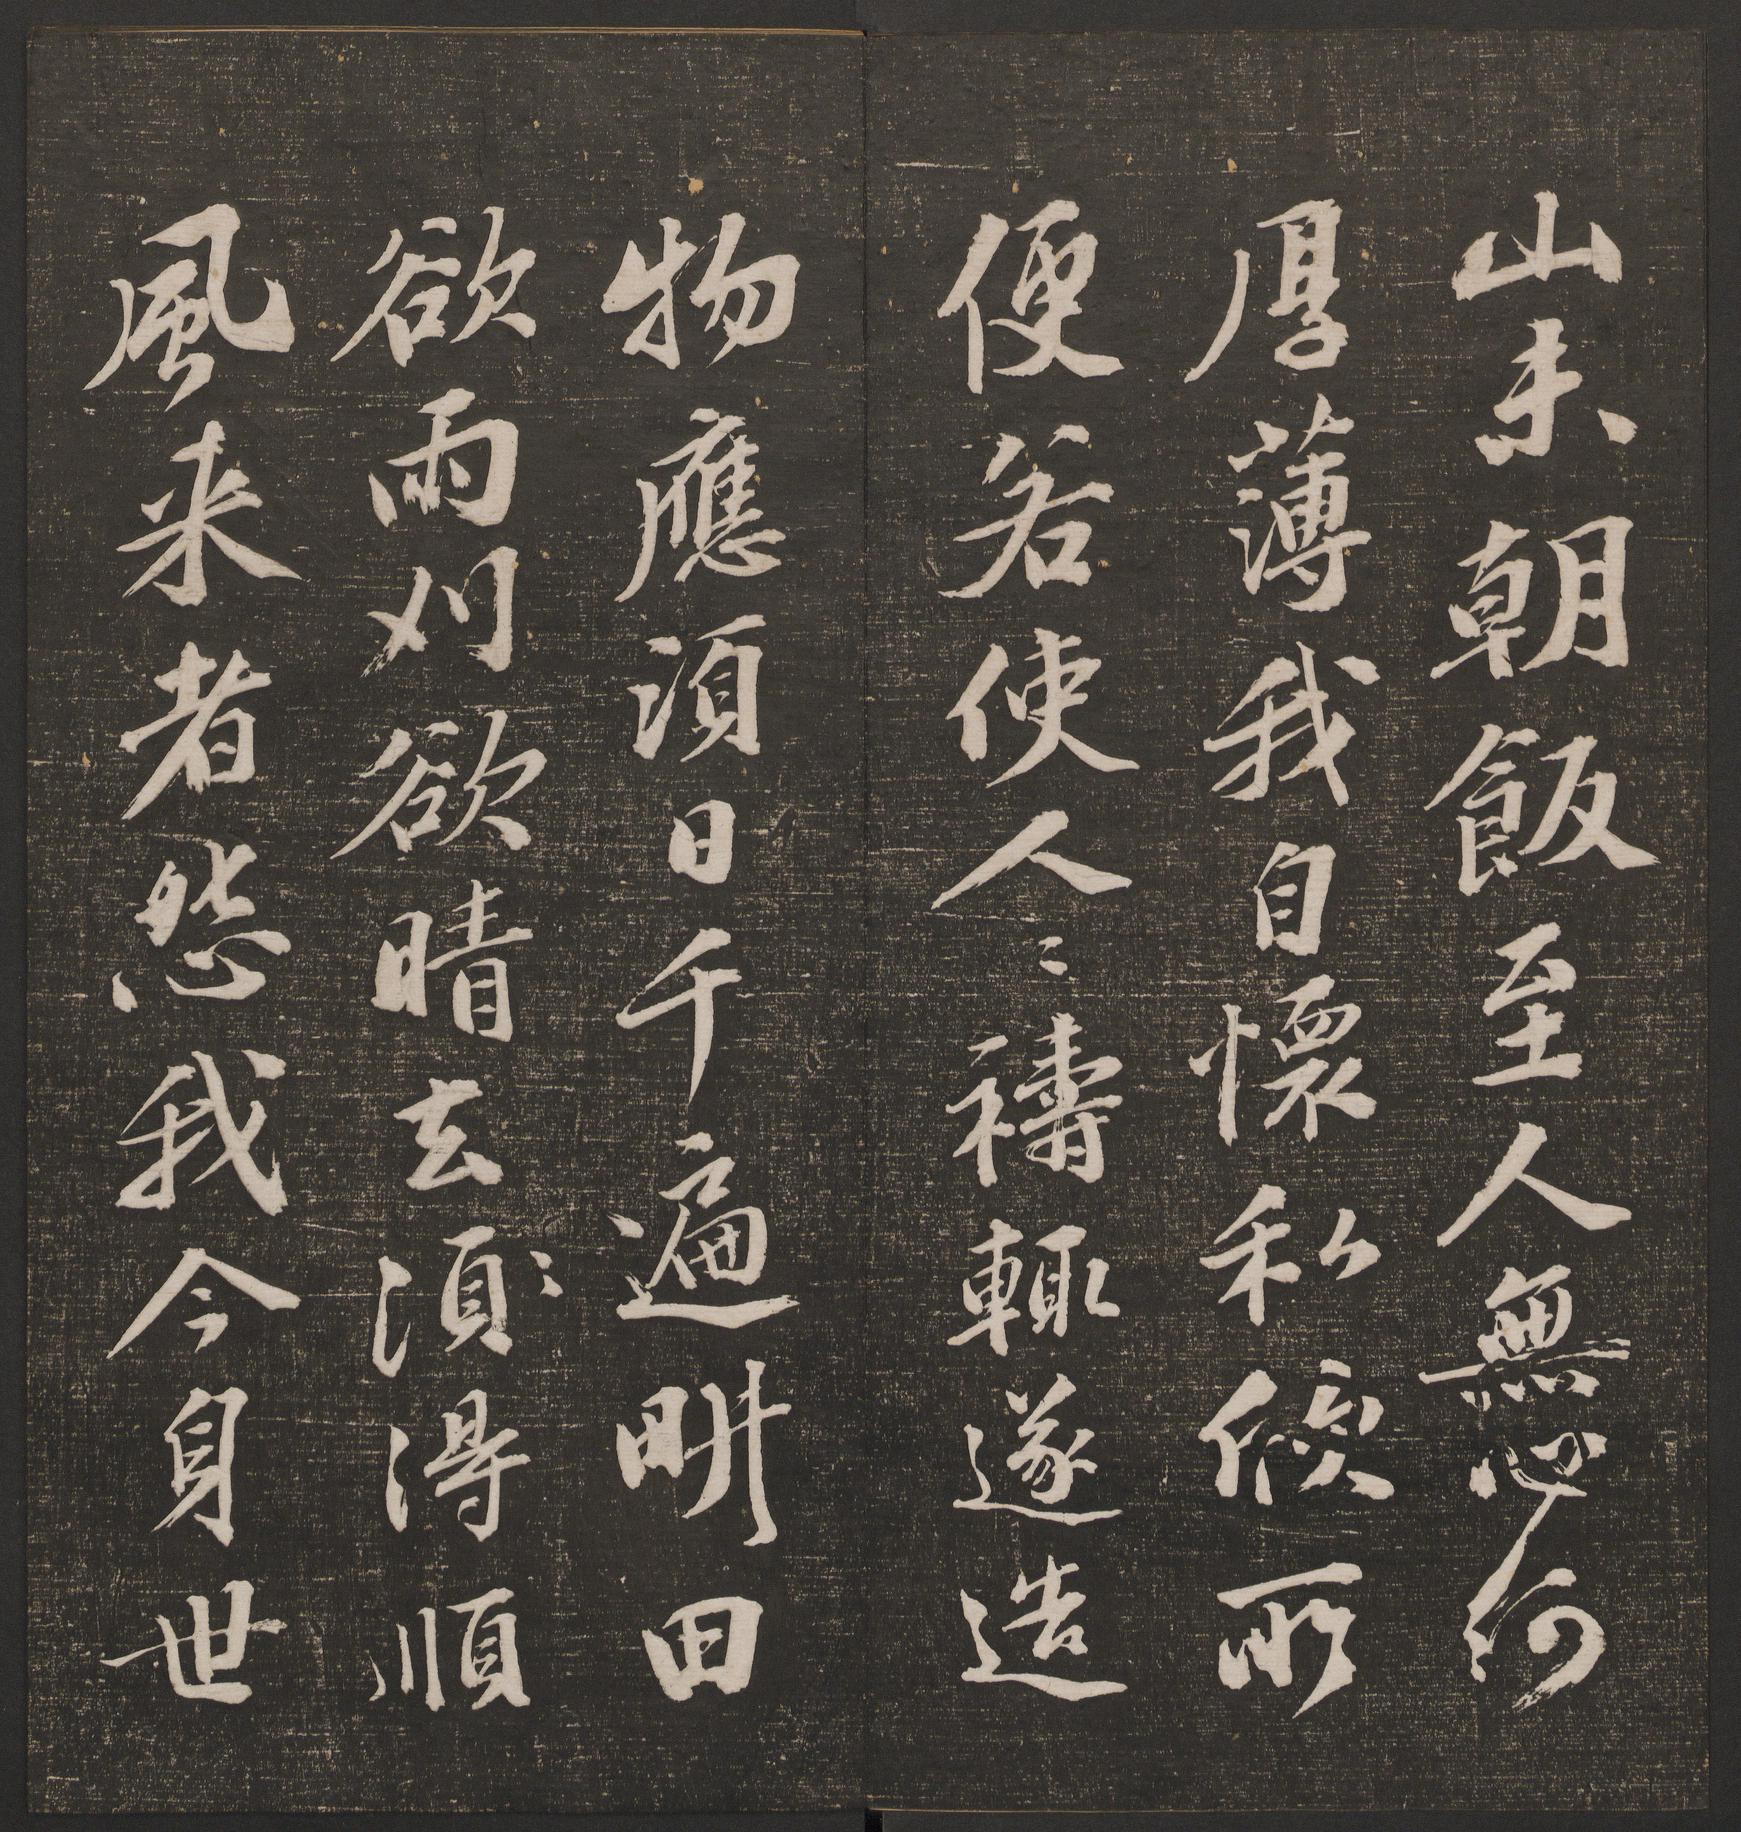 山未朝飯至人無心何
厚薄我自懷私所
便若使人〻禱輒遂造
物應須日千遍畊田
欲雨刈欲晴去須得順
風来者怨我今身世